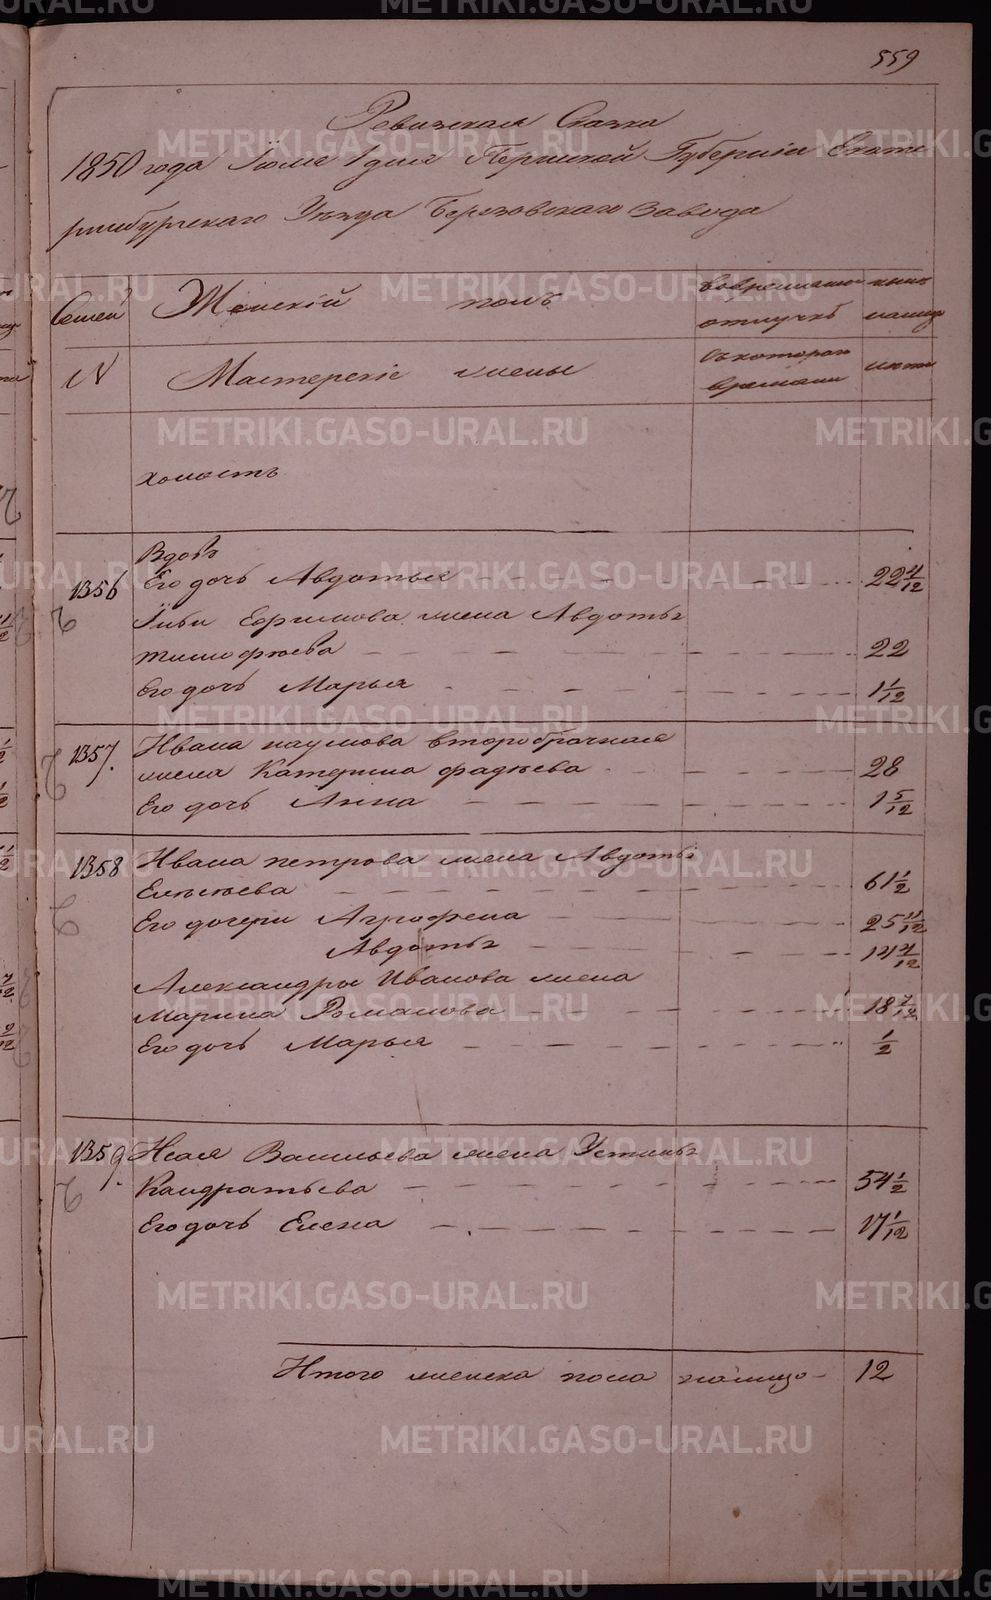 559
Ревизская Сказка
1850 года Iюля 1 дня Пермской Губернiи Екате
ринбургскаго Уѣзда Березовскаго завода
Семей Женскiй полъ вовременно ныне
отлучкѣ налицо
N Мастерскiе жены съ котораго
времени лѣта
холостъ
Вдовъ
1356 Его дочь Авдотья 22 4/12
Ильи Ефимова жена Авдотья
тимофеева 22
Его дочь Марья 1 1/12
1357. Ивана наумова второбрачная
жена Катерина фадѣева 28
Его дочь Анна 1 5/12
1358 Ивана петрова жена Авдотья
Елисѣева 61 1/2
Его дочери Аграфена 25 11/12
Авдотья 14 4/12
Александры Иванова жена
Марина Романова 18 7/12
Его дочь Марья 1/2
1359. Исая Васильева жена Устинья
Кандратьева 54 1/2
Его дочь Елена 17 1/12
Итого женска пола налицо 12
METRIKI.GASO-URAL.RU